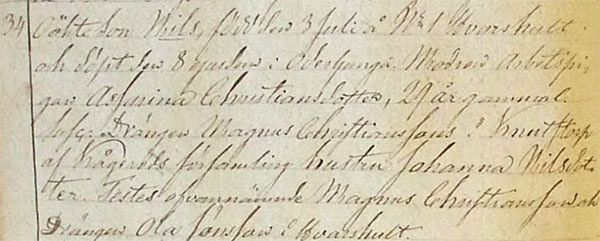 34 Oäkte Son Nils, född den 3 Juli å No 1 Qvarshult
och döpt den 8 ejusdem i Oderljunga. Modren Arbetspi-
gan Assarina Christiansdotter, 29 år gammal.
Susc: Drängen Magnus Christianssons i Knutstorp
af Kågeröds församling hustru Johanna Nilsdot-
ter. Testes ofvannämnde Magnus Christiansson och
Drängen Ola Jönsson i Qvarshult.